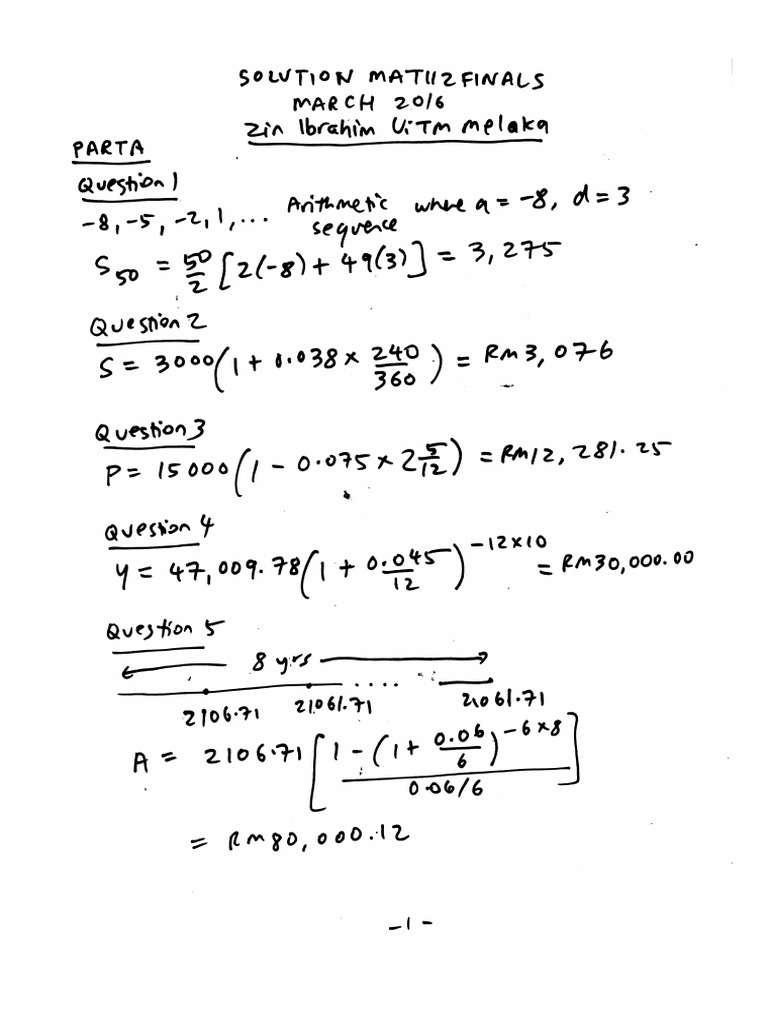 SOLUTION MAT112 FINALS
MARCH 2016
Zin Ibrahim UiTM melaka
PART A
Question 1
-8, -5, -2, 1, ... Arithmetic sequence where a = -8, d = 3
S₅₀ = 50/2 [2(-8) + 49(3)] = 3,275
Question 2
S = 3000(1 + 0.038 × 240/360) = RM3,076
Question 3
P = 15000(1 - 0.075 × 2 5/12) = RM12,281.25
Question 4
y = 47,009.78(1 + 0.045/12)^(-12×10) = RM30,000.00
Question 5
8 yrs
....
2106.71 21061.71 21061.71
A = 2106.71 [(1 - (1 + 0.06/6)^(-6×8)) / (0.06/6)]
= RM80,000.12
-1-